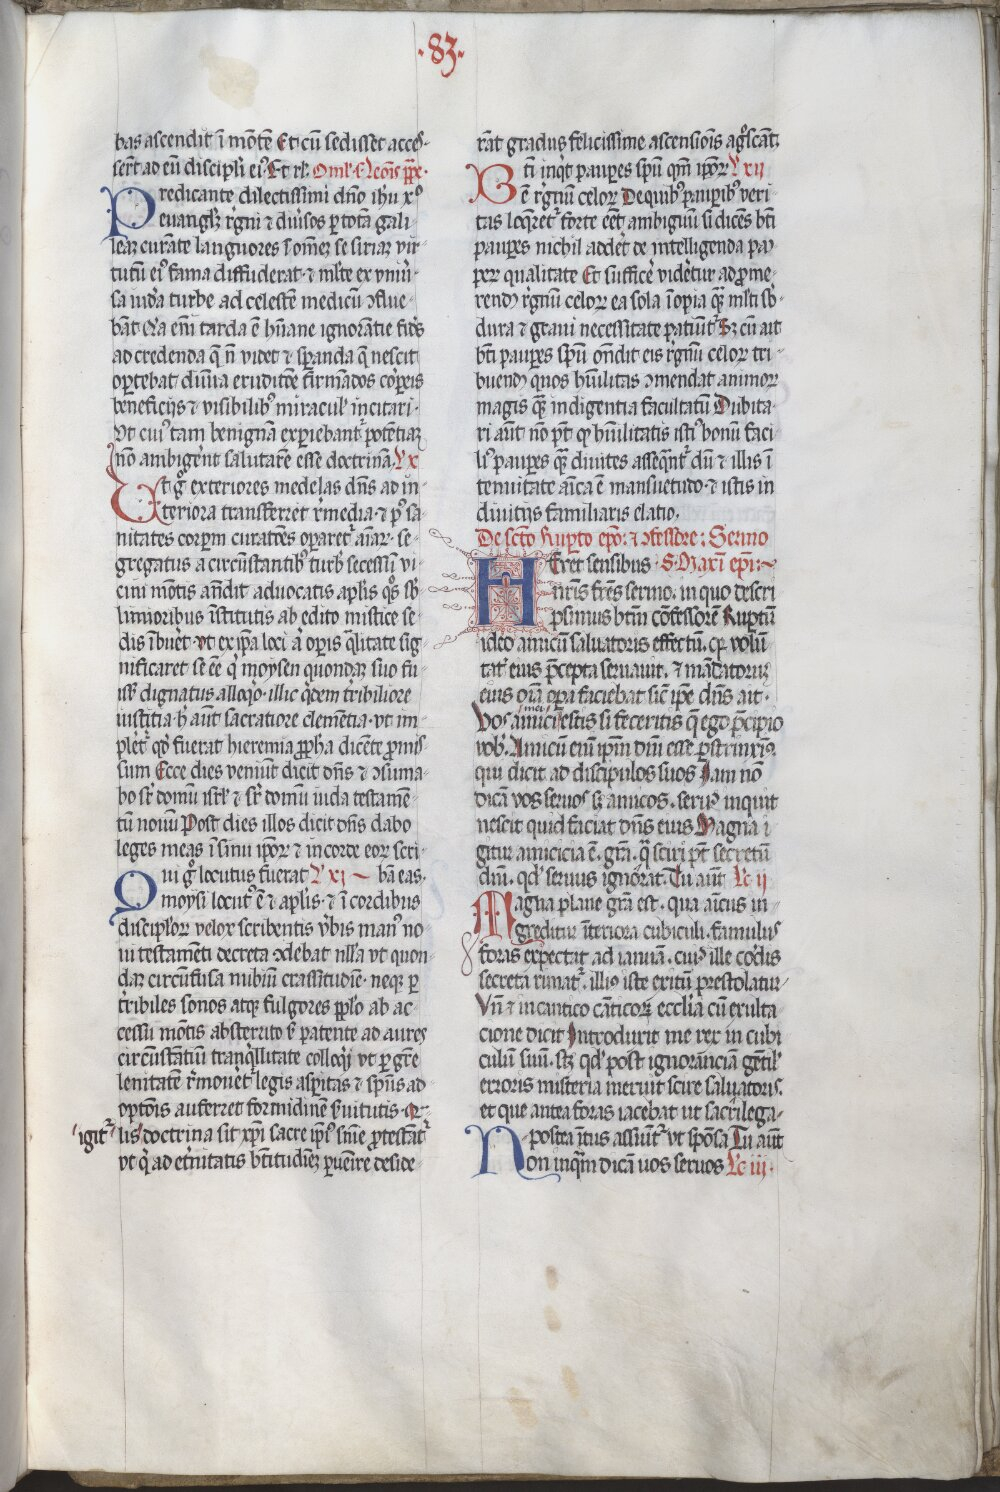 ·83·
bas ascendit ī mōtē Et cū sedisset acces-
serūt ad eū discipli eiꝰ Et rlͥ. Oml' s. leōis ppe.
Predicante dilectissimi dn̄o ihū xpo
euangliū rͤgni ⁊ diuͤsos ꝑ totā gali-
leaꝫ curāte languores ī om̄eꝫ se siriaꝫ vir-
tutū eiꝰ fama diffuderat· ⁊ mltͤ ex vniuͤ-
sa iudͤa turbe ad celestē medicū ↄflue-
bāt Q̄a eni tarda ē hūane ignorātie fidͤs
ad credenda q̄ nō videt ⁊ sꝑanda q̄ nescit
oꝑtebat diuīa eruditōe firmādos corꝑeis
beneficijs ⁊ visibilibꝰ miracul' incitari·
Vt cuiꝰ tam benignā exꝑiebant᷑ potētiaꝫ
nō ambigerēt salutarē esse doctrinā Lͨ x
Ut g̊ exteriores medelas dn̄s ad in-
teriora transferret rͤmedia· ⁊ pꝰ sa-
nitates corpm curatōes oꝑaret᷑ aīaꝝ· se-
gregatus a circūstantibꝰ turb' secessū vi-
cini mōtis ascēdit aduocatis aplis qͦs sb-
limioribus īstitutis ab edito mistice se-
dis ībuēt· vt ex ipa loci ⁊ oꝑis q̄litate sig-
nificaret se eē qͥ moysen quondaꝫ suo fu-
iss' dignatus alloqͦ· illic qͥdem tͤribiliore
iustitia· h' aūt sacratiore clemētia· vt im-
plēt᷑ qd̓ fuerat hieremia ppha dicēte ꝓmis
sum Ecce dies veniūt dicit dn̄s ⁊ ↄsuma-
bo sꝑ domū isrl' ⁊ sꝑ domū iuda testamē-
tū nouū Post dies illos dicit dn̄s dabo
leges meas ī sinu ipoꝝ ⁊ in corde eoꝝ scri-
Qui g̊ locutus fuerat Lͨ xi bā eas.
moysi locutꝰ ē ⁊ aplis· ⁊ ī cordibus
discipl'oꝝ velox scribentis vͤbis manꝰ no-
ui testamēti decreta ↄdebat nlla vt quon-
daꝫ circūfusa nubiū crassitudīe· neqꝫ ꝑ
tͤribiles sonos atqꝫ fulgores ppl'o ab ac-
cessu mōtis absterrito sꝫ patente ad aures
circūstātiū tranqͥllitate colloqͥj vt ꝑ gr̄e
lenitatē rͤmouēt᷑ legis asꝑitas ⁊ spūs ad-
optōis auferret formidinē sͤuitutis· Q̄-
igit᷑ lis doctrina sit xpi sacre ipiꝰ sn̄ie ꝓtestāt᷑
vt qͥ ad etͤnitatis btītudīeꝫ ꝑuēire deside-
rāt gradus felicissime ascensiōis agͦscāt.
Bti inqͥt pauꝑes spū qm̄ ipoꝝ Lͨ xii
ē rͤgnū celoꝝ De quibꝰ pauꝑibꝰ veri-
tas loqͤret᷑ forte eēt ambiguū si dicēs bti
pauꝑes nichil addēt de intelligenda pau-
ꝑeꝝ qualitate Et sufficē vidētur ad ꝓme-
rendū rͤgnū celoꝝ ea sola īopia quā mlti sb
dura ⁊ graui necessitate patiūt᷑ Sꝫ cū ait
bti pauꝑes spū on̄dit eis rͤgnū celoꝝ tri-
buendū quos hūilitas ↄmendat animoꝝ
magis quā indigentia facultatū Dubita-
ri aūt nō pt̄ qꝫ hūilitatis istiꝰ bonū faci-
liꝰ pauꝑes quā diuites asseqͣnt᷑ dū ⁊ illis ī
tenuitate aīca ē mansuetudo· ⁊ istis in
diuitijs familiaris elatio.
De scto Ruꝑto epo: ⁊ ↄfessore: Sermo
HEret sensibus S. Maxi epi:~
nr̄is frēs sermo. in quo descri
psimus btm̄ cōfessorē Ruꝑtū
ideo amicū saluatoris effectū. qꝫ volū
tat' eius p̄cepta seruauit. ⁊ mādatoruꝫ
eius oīa oꝑa faciebat sic̄ ipe dn̄s ait·
Vos amici mei estis si feceritis q̄ ego p̄cipio
vob'. Amicū eni ipm̄ dn̄i esse ꝑstrinxiꝰ.
qui dicit ad discipulos suos Iam nō
dicā vos seruos sꝫ amicos. seruꝰ inquit
nescit quid faciat dn̄s eius Magna i
gitur amicicia ē. gr̄a. q̄ sciri pt̄ secretū
dn̄i. qd' seruus ignorat. Tu aūt Lͨ ii
Magna plane gr̄a est. qua aīcus in-
greditur īteriora cubiculi. famulus
foras expectat ad ianuā. cuiꝰ ille cordis
secreta rimat᷑. illiꝰ iste exitū prestolatur
Vn̄ ⁊ in cantico cāticoꝝ ecclīa cū exulta-
cione dicit Introduxit me rex in cubi
culū suū. sꝫ qd' post ignorāciā gētil'
erroris misteria meruit scire saluatoris.
et que antea foras iacebat ut sacrilega-
postea ītus assiūit᷑ vt spōsa Tu aūt
Non inquā dicā uos seruos Lͨ iii·